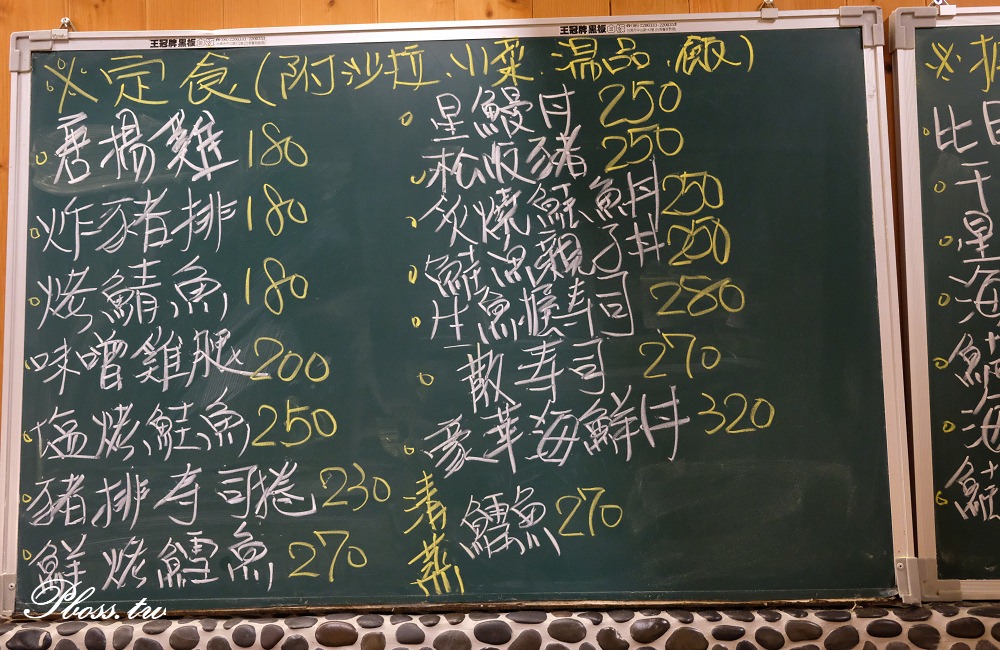 王冠牌黑板
王冠牌黑板
※定食(附沙拉.小菜.湯品.飯)
唐揚雞 180
炸豬排 180
烤鯖魚 180
味噌雞腿 200
塩烤鮭魚 250
豬排寿司捲 230
鮮烤鱈魚 270
星鰻丼 250
松阪豬 250
炙燒鮭魚丼 250
鮭魚親子丼 250
生魚握寿司 280
散寿司 270
豪華海鮮丼 320
清蒸 鱈魚 270
※
比
干
星
海
鮭
海
鮭
Pboss.tw